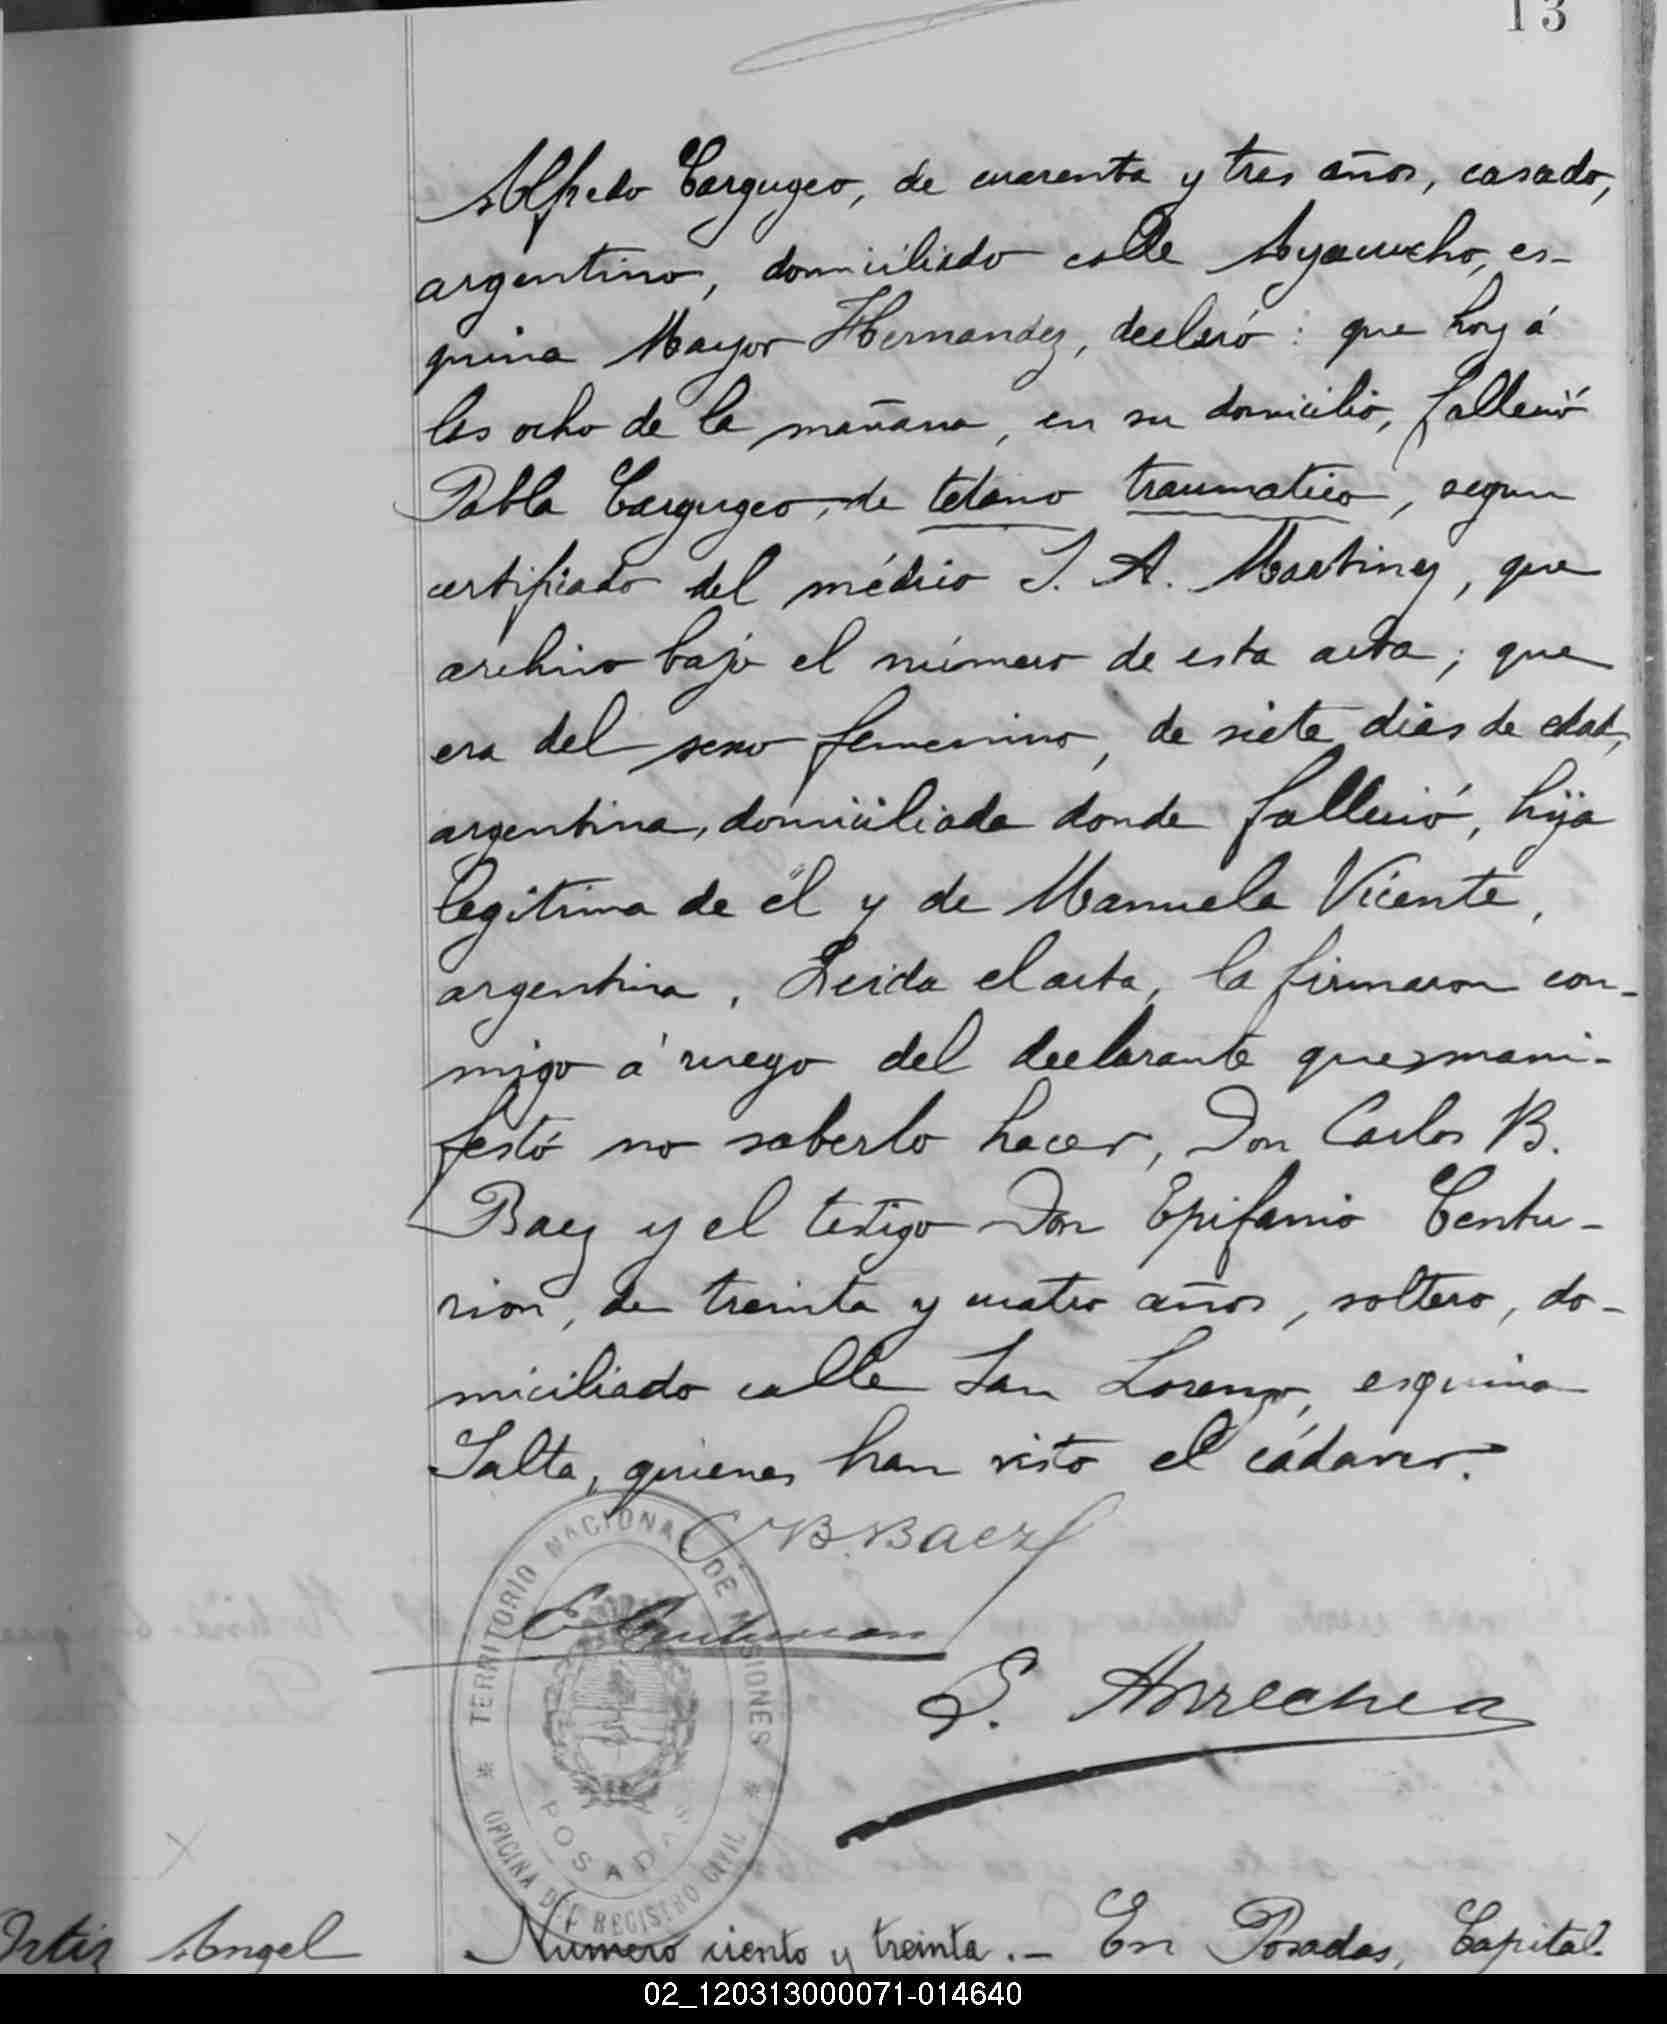 13
Alfredo Cargugeo, de cuarenta y tres años, casado,
argentino, domiciliado calle Ayacucho, es-
quina Mayor Hernandez, declaró: que hoy á
las ocho de la mañana, en su domicilio, falleció
Pabla Cargugeo, de tétano traumatico, segun
certificado del médico S. A. Martinez, que
archivo bajo el número de esta acta; que
era del sexo femenino, de siete dias de edad,
argentina, domiciliada donde falleció, hija
legitima de él y de Manuela Vicente,
argentina. Leida el acta, la firmaron con-
migo á ruego del declarante que mani-
festó no saberlo hacer, Don Carlos B.
Baez y el testigo Don Epifanio Centu-
rion, de treinta y cuatro años, soltero, do-
miciliado calle San Lorenzo, esquina
Salta, quienes han visto el cádaver.
C B. Baez
E Centurion
TERRITORIO NACIONAL DE MISIONES
POSADAS
OFICINA DEL REGISTRO CIVIL
S. Arrechea
Ortiz Angel
Número ciento y treinta.- En Posadas, Capital
02_120313000071-014640